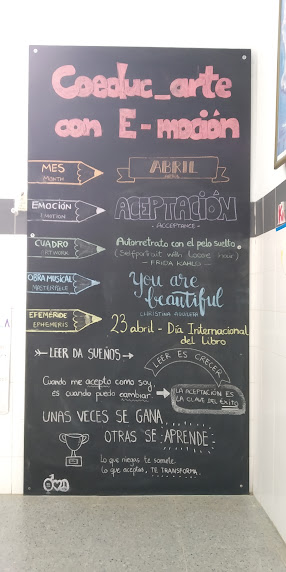 Coeduc_arte
con E-moción
MES
MONTH
ABRIL
EMOCIÓN
EMOTION
ACEPTACIÓN
- ACCEPTANCE -
CUADRO
ARTWORK
Autorretrato con el pelo suelto
(Selfportrait with Loose Hair)
- FRIDA KAHLO -
OBRA MUSICAL
MASTERPIECE
You are
beautiful
CHRISTINA AGUILERA
EFEMÉRIDE
EPHEMERIS
23 abril - Día Internacional
del Libro
LEER DA SUEÑOS
LEER ES CRECER
Cuando me acepto como soy,
es cuando puedo cambiar.
LA ACEPTACIÓN ES
LA CLAVE DEL ÉXITO
UNAS VECES SE GANA,
OTRAS SE APRENDE.
Lo que niegas te somete.
Lo que aceptas, TE TRANSFORMA.